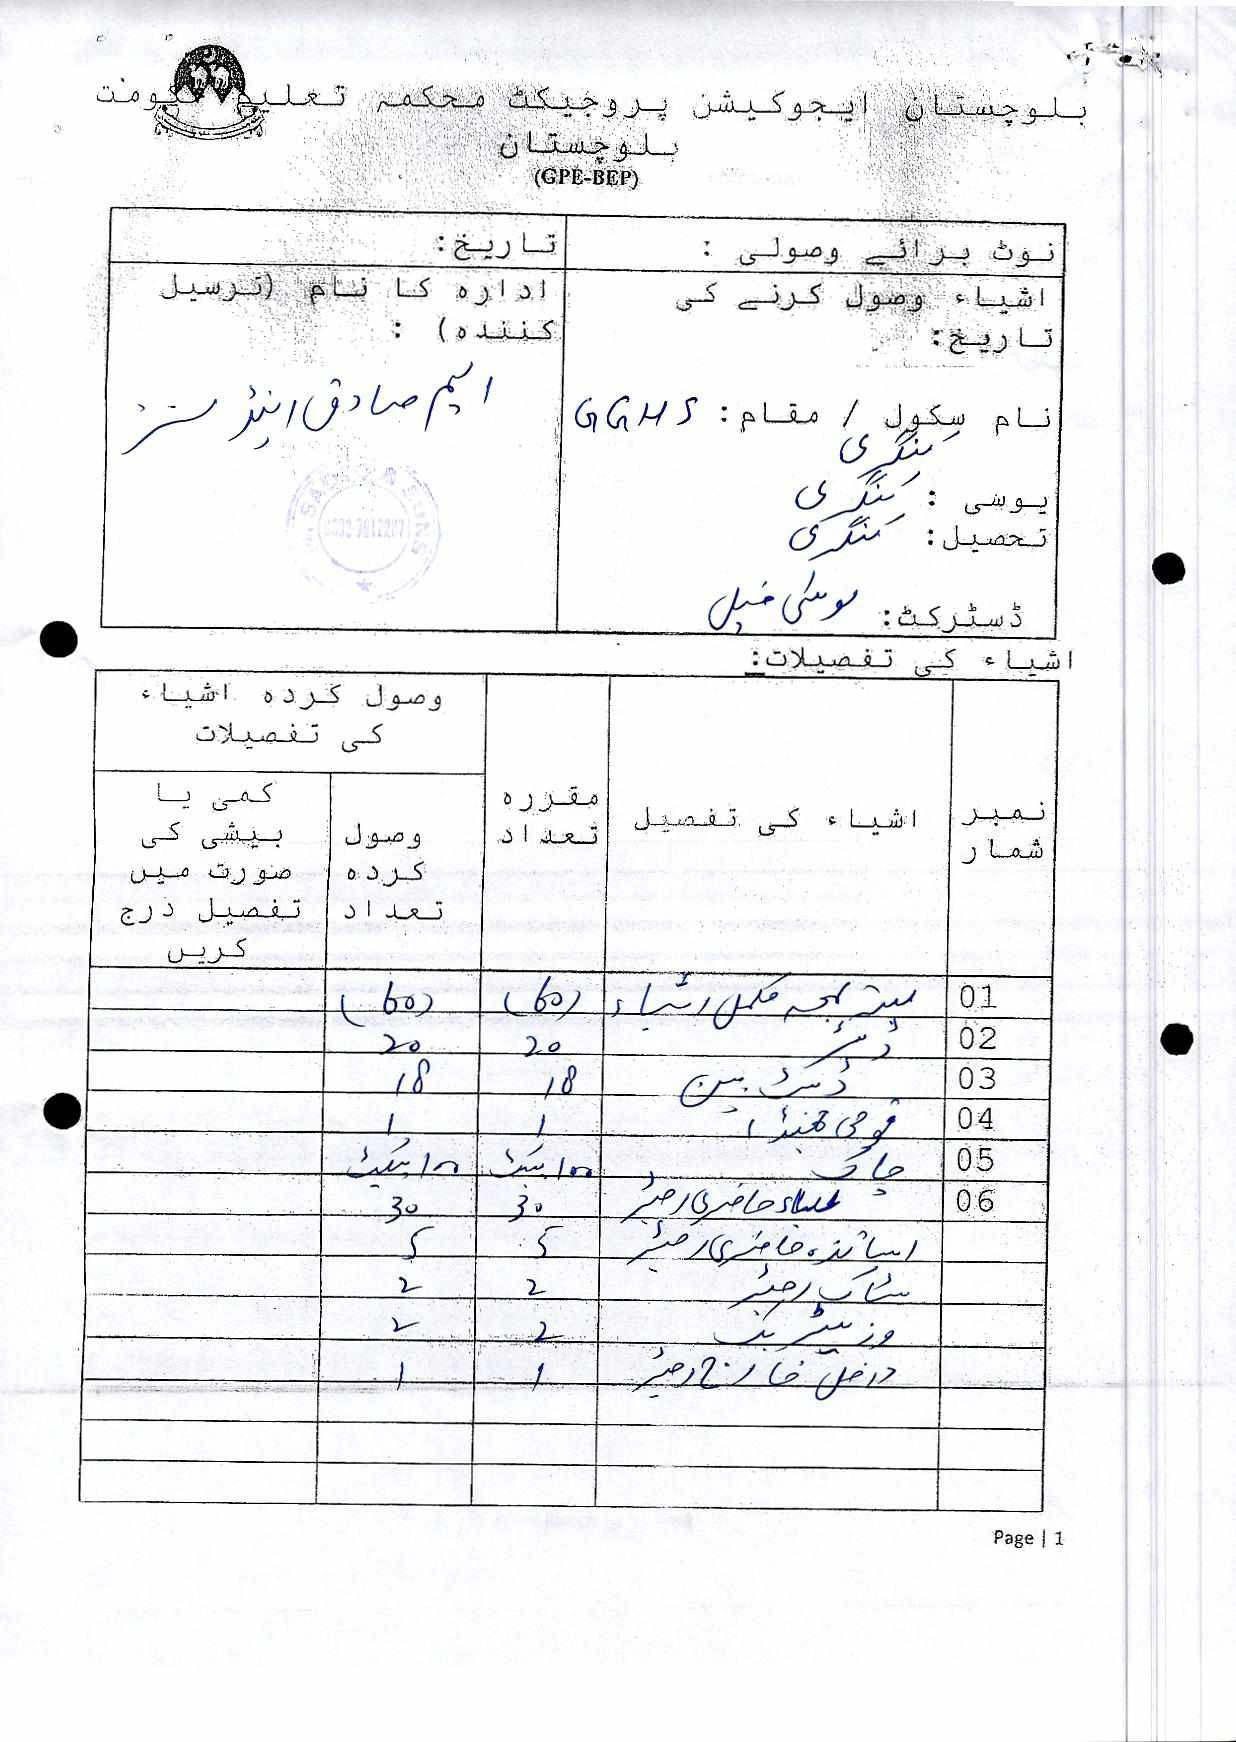 بلوچستان ایجوکیشن پروجیکٹ محکمہ تعلیم حکومت
بلوچستان
(GPE-BEP)
نوٹ برائے وصولی :
تاریخ:
اشیاء وصول کرنے کی
تاریخ:
نام سکول / مقام: GGHS
کنگری
یوسی : کنگری
تحصیل: کنگری
ڈسٹرکٹ: موسیٰ خیل
ادارہ کا نام (ترسیل
کنندہ) :
ایم صادق اینڈ سنز
اشیاء کی تفصیلات:
نمبر شمار
اشیاء کی تفصیل
مقررہ تعداد
وصول کردہ اشیاء کی تفصیلات
وصول کردہ تعداد
کمی یا بیشی کی صورت میں تفصیل درج کریں
01 بمعہ مکمل اشیاء (60) (60)
02 ڈسٹر 20 20
03 ڈسٹ بین 18 18
04 قومی جھنڈا 1 1
05 چاک 100 پیکٹ 100 پیکٹ
06 طلباء حاضری رجسٹر 30 30
اساتذہ حاضری رجسٹر 5 5
سٹاک رجسٹر 2 2
وزیٹر بک 2 2
داخل خارج رجسٹر 1 1
Page | 1